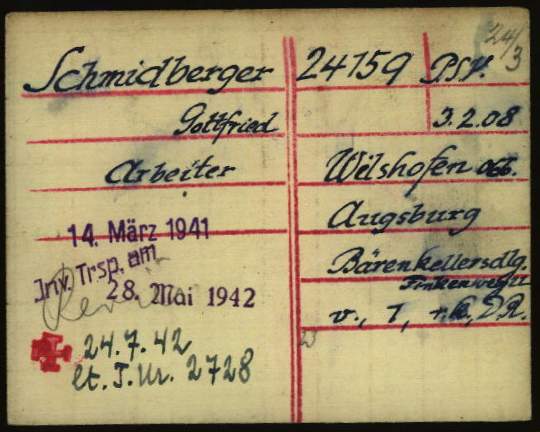 24/3
Schmidberger 24159 PSV.
Gottfried 3.2.08
Arbeiter Welshofen Obb.
14. März 1941 Augsburg
Inv. Trsp. am Bärenkellersdlg.
28. Mai 1942
v., 1, r.k., D.R.
24.7.42
lt. T. Nr. 2728